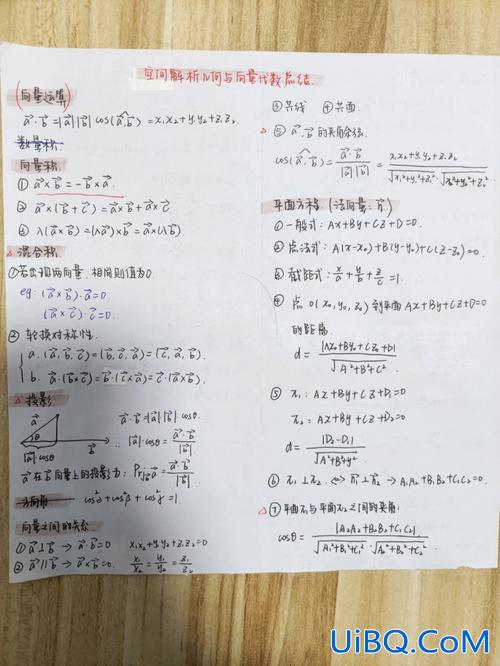 空间解析几何与向量代数总结.
(向量运算)
a⃗·b⃗=|a⃗|·|b⃗| cos(a⃗,b⃗)=x₁x₂+y₁y₂+z₁z₂
数量积.
向量积
① a⃗×b⃗=-b⃗×a⃗.
② a⃗×(b⃗+c⃗)=a⃗×b⃗+a⃗×c⃗
③ λ(a⃗×b⃗)=(λa⃗)×b⃗=a⃗×(λb⃗)
△ 混合积
①若出现两向量,相同则值为0.
eg: (a⃗×b⃗)·a⃗=0.
(a⃗×c⃗)·c⃗=0.
② 轮换对称性.
a. (a⃗,b⃗,c⃗)=(b⃗,c⃗,a⃗)=(c⃗,a⃗,b⃗).
b. a⃗·(b⃗×c⃗)=b⃗·(c⃗×a⃗)=c⃗·(a⃗×b⃗)
△ 投影
a⃗·b⃗=|a⃗|·|b⃗|·cosθ.
a⃗ θ b⃗
|a⃗|·cosθ
∴|a⃗|·cosθ=a⃗·b⃗/|b⃗|
a⃗在b⃗向量上的投影为: Prj_b⃗ a⃗=a⃗·b⃗/|b⃗|
方向角. cos²α+cos²β+cos²γ=1.
向量之间的关系
① a⃗⊥b⃗ → a⃗·b⃗=0 x₁x₂+y₁y₂+z₁z₂=0
② a⃗∥b⃗ → a⃗×b⃗=0. x₁/x₂=y₁/y₂=z₁/z₂
③共线 ④共面.
△ ⑤ a⃗,b⃗的夹角余弦.
cos(a⃗,b⃗)=a⃗·b⃗/|a⃗||b⃗|=x₁x₂+y₁y₂+z₁z₂/√x₁²+y₁²+z₁²·√x₂²+y₂²+z₂²
平面方程.(法向量:n⃗)
①一般式: Ax+By+Cz+D=0.
② 点法式: A(x-x₀)+B(y-y₀)+C(z-z₀)=0.
③ 截距式: x/a+y/b+z/c=1.
④ 点 0(x₀,y₀,z₀)到平面Ax+By+Cz+D=0
的距离.
d=|Ax₀+By₀+Cz₀+D|/√A²+B²+C²
⑤ π₁: Ax+By+Cz+D₁=0
π₂: Ax+By+Cz+D₂=0
d=|D₂-D₁|/√A²+B²+y²
⑥ π₁⊥π₂. ⟺ n₁⃗⊥n₂⃗ → A₁A₂+B₁B₂+C₁C₂=0.
△ ⑦平面π₁与平面π₂之间的夹角:
cosθ=|A₁A₂+B₁B₂+C₁C₂|/√A₁²+B₁²+C₁²·√A₂²+B₂²+C₂²
UiBQ.CoM